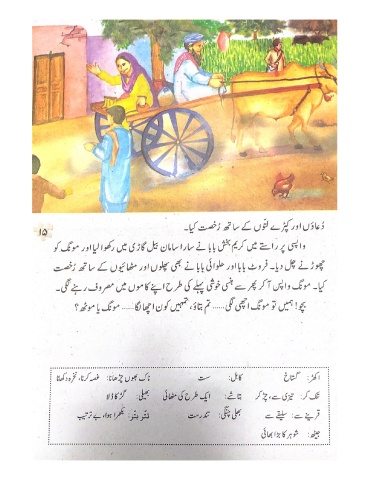 دُعاؤں اور کپڑے لتّوں کے ساتھ رُخصت کیا۔
۱۵
واپسی پر راستے میں کریم بخش بابا نے سارا سامان بیل گاڑی میں رکھوا لیا اور مونگ کو
چھوڑنے چل دیا۔ فروٹ بابا اور حلوائی بابا نے بھی پھلوں اور مٹھائیوں کے ساتھ رُخصت
کیا۔ مونگ واپس آ کر پھر سے ہنسی خوشی پہلے کی طرح اپنے کاموں میں مصروف رہنے لگی۔
بچو! ہمیں تو مونگ اچھی لگی...... تم بتاؤ، تمہیں کون اچھا لگا...... مونگ یا موٹھ؟
اکھڑ: گستاخ کاہل: سست ناک بھوں چڑھانا: غصہ کرنا، نخرہ دکھانا
تنک کر: تیزی سے، چڑ کر بتاشے: ایک طرح کی مٹھائی بھیلی: گڑ کا ڈلا
قرینے سے: سلیقے سے بھلی چنگی: تندرست تتّر بتّر: بکھرا ہوا، بے ترتیب
جیٹھ: شوہر کا بڑا بھائی